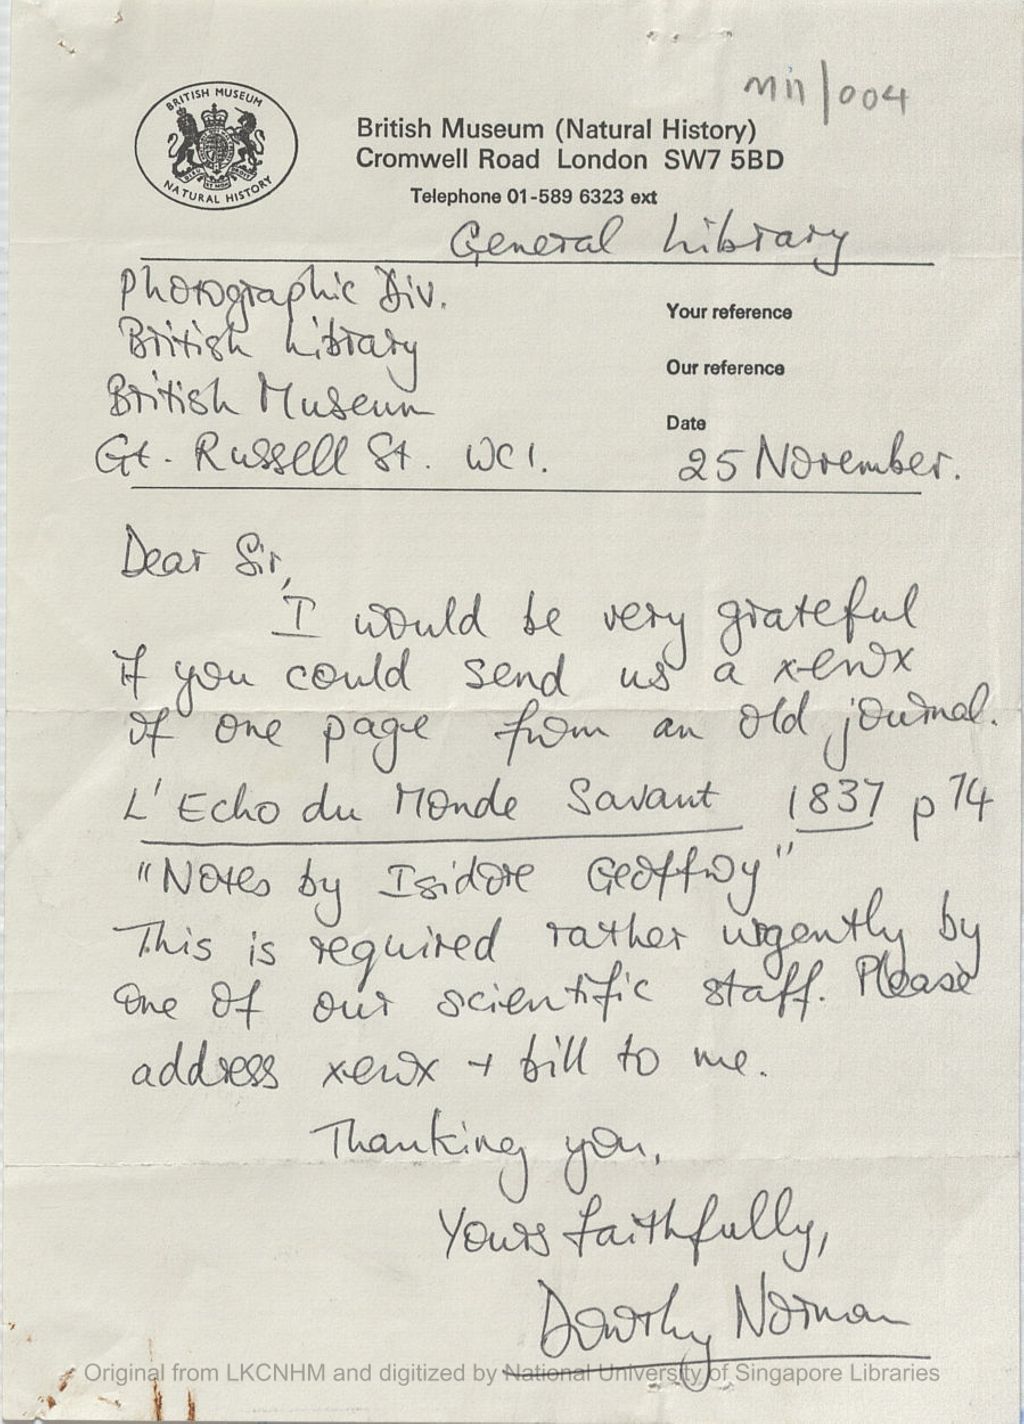 Mn/004
BRITISH MUSEUM
NATURAL HISTORY
British Museum (Natural History)
Cromwell Road London SW7 5BD
Telephone 01-589 6323 ext
General Library
Photographic Div.
British Library
British Museum
Gt. Russell St. WC1.
Your reference
Our reference
Date
25 November.
Dear Sir,
I would be very grateful
if you could send us a xerox
of one page from an old journal.
L'Echo du Monde Savant 1837 p 74
"Notes by Isidore Geoffroy"
This is required rather urgently by
one of our scientific staff. Please
address xerox + bill to me.
Thanking you,
Yours faithfully,
Dorothy Norman
Original from LKCNHM and digitized by National University of Singapore Libraries